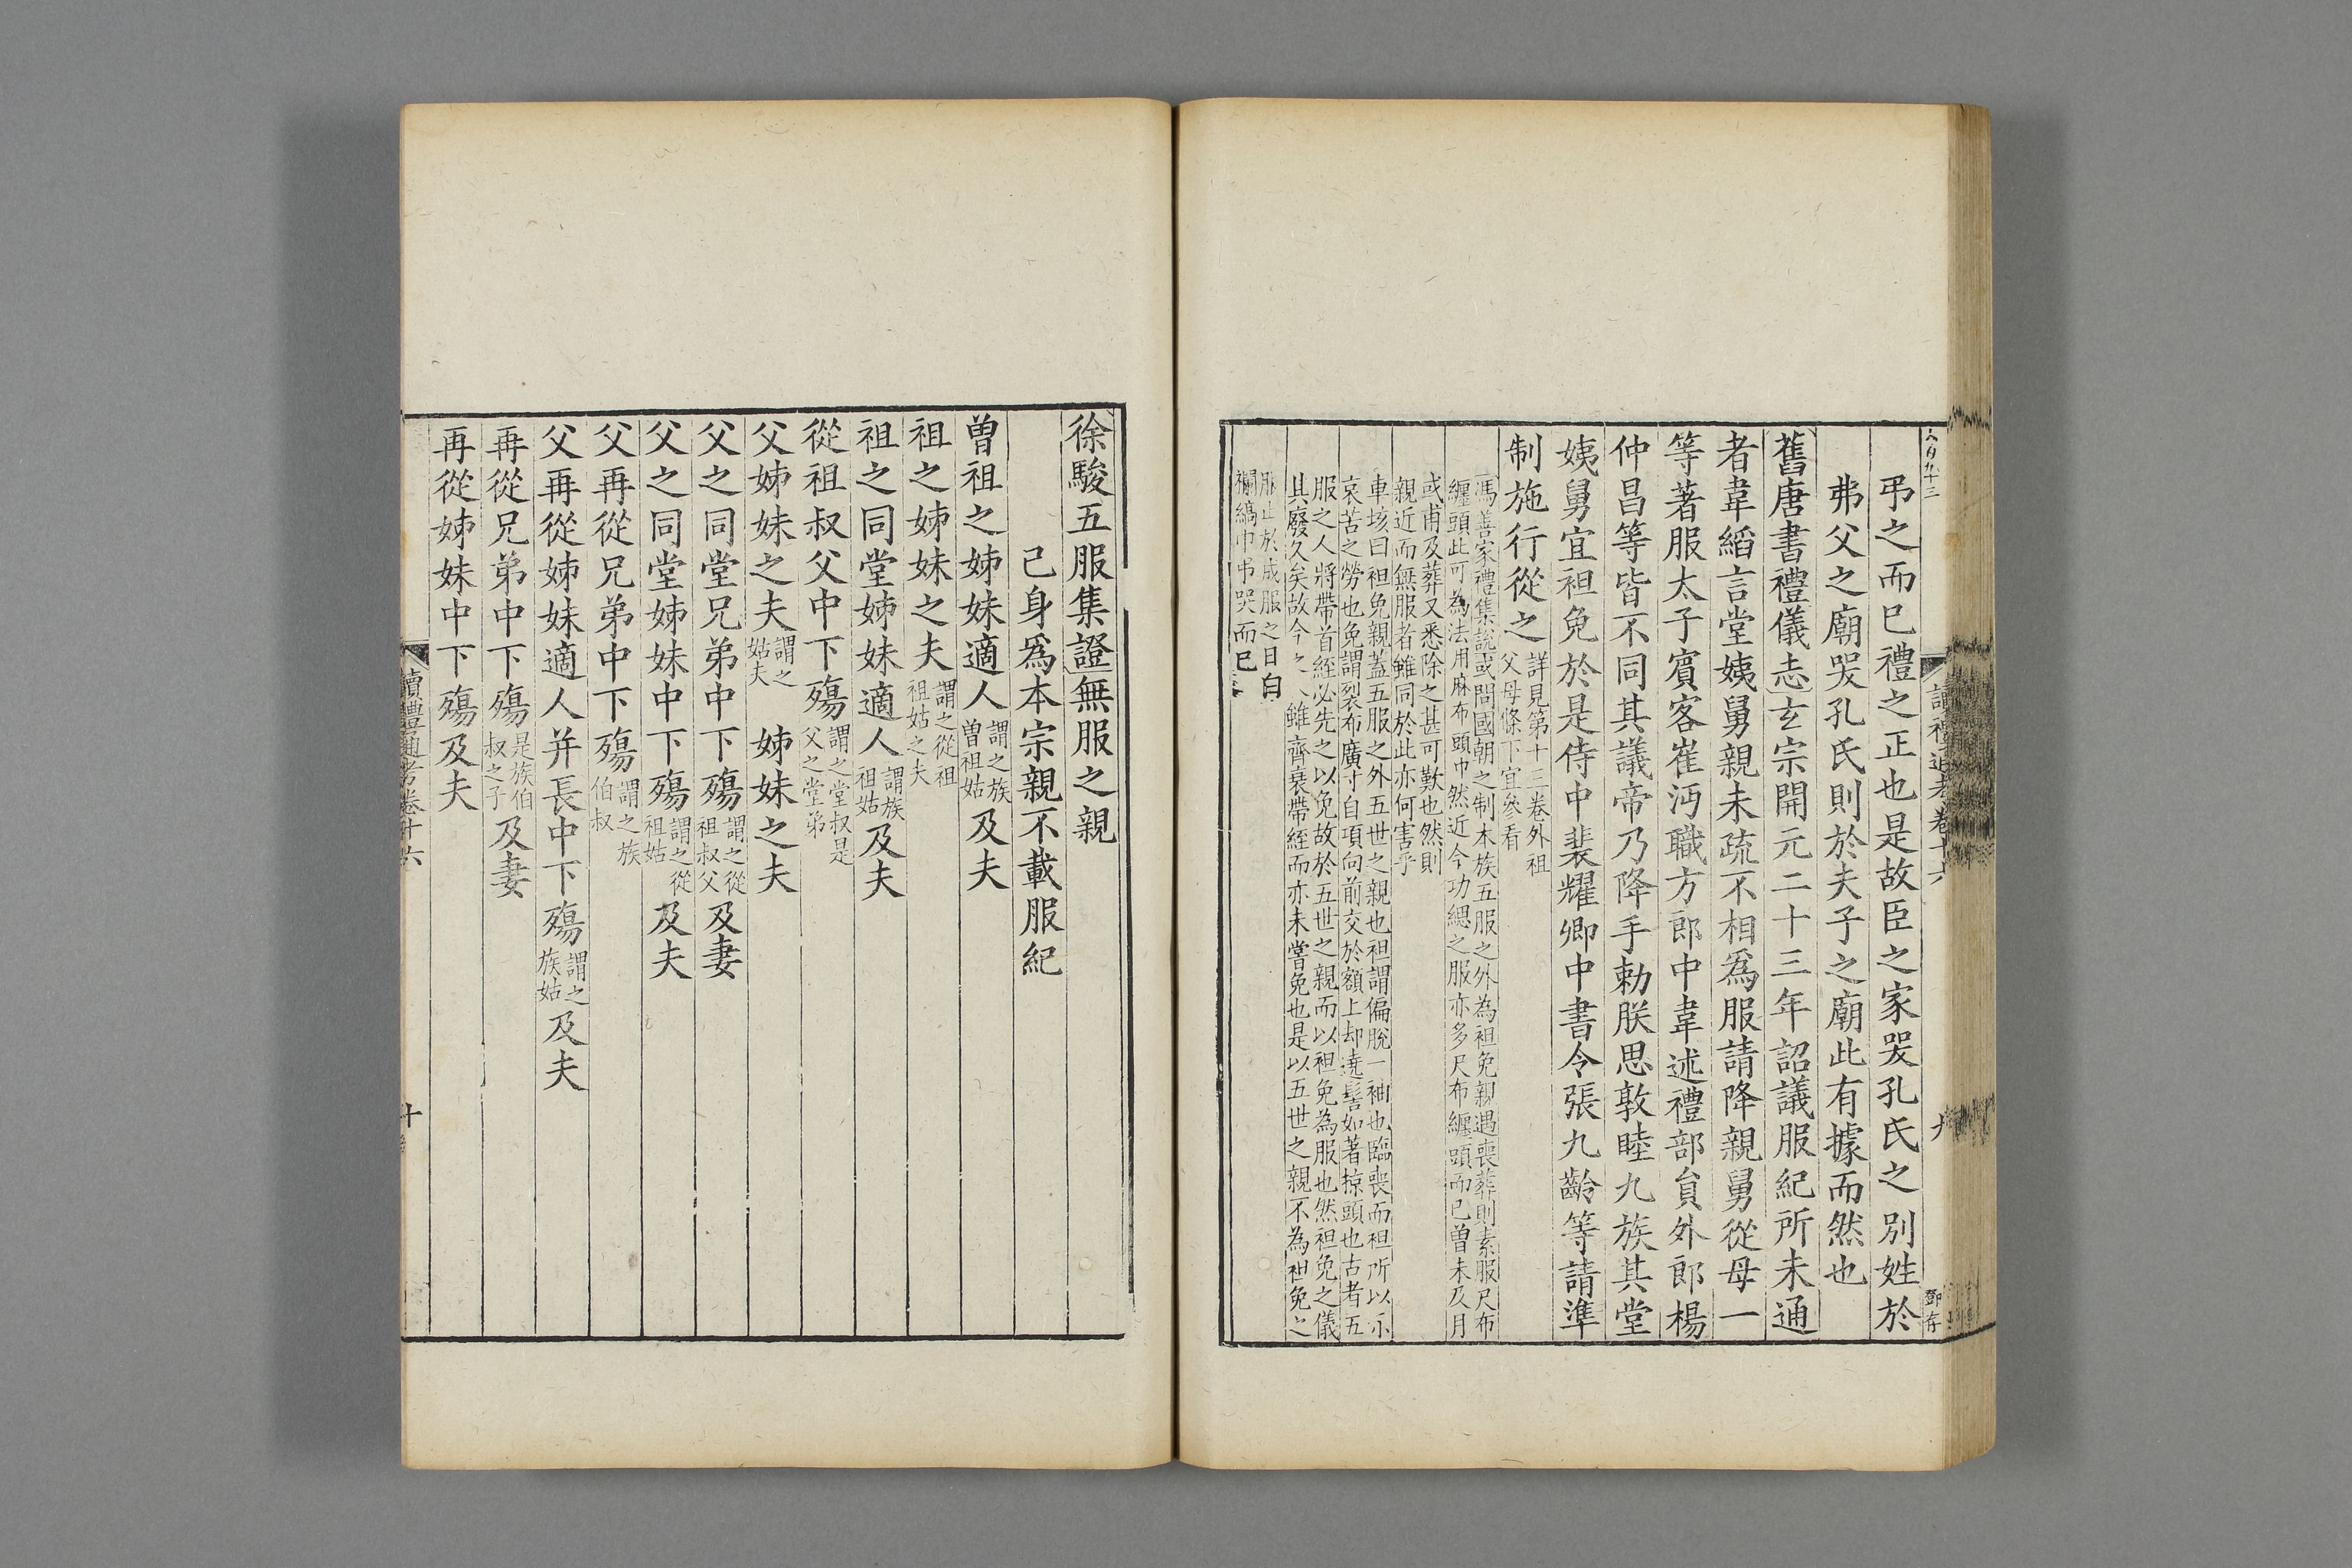 弔之而巳禮之正也是故臣之家哭孔氏之別姓於
弗父之廟哭孔氏則於夫子之廟此有據而然也
舊唐書禮儀志玄宗開元二十三年詔議服紀所未通
者韋縚言堂姨舅親未疏不相爲服請降親舅從母一
等著服太子賓客崔沔職方郎中韋述禮部員外郎楊
仲昌等皆不同其議帝乃降手勅朕思敦睦九族其堂
姨舅宜袒免於是侍中裴耀卿中書令張九齡等請準
制施行從之詳見第十三卷外祖
父母條下宜參看
馮善家禮集說或問國朝之制本族五服之外為袒免親遇喪葬則素服尺布
纏頭此可為法用麻布頭巾然近今功緦之服亦多尺布纏頭而已曾未及月
或甫及葬又悉除之甚可歎也然則
親近而無服者雖同於此亦何害乎
車垓曰袒免親蓋五服之外五世之親也袒謂偏脫一袖也臨喪而袒所以示
哀苦之勞也免謂裂布廣寸自項向前交於額上却遶髻如著掠頭也古者五
服之人將帶首絰必先之以免故於五世之親而以袒免為服也然袒免之儀
其廢久矣故今之人雖齊衰帶絰而亦未嘗免也是以五世之親不為袒免之
服止於成服之日白
襴縞巾弔哭而已
讀禮通考卷十六
九
鄧存
徐駿五服集證無服之親
己身爲本宗親不載服紀
曾祖之姊妹適人謂之族
曾祖姑及夫
祖之姊妹之夫謂之從祖
祖姑之夫
祖之同堂姊妹適人謂族
祖姑及夫
從祖叔父中下殤謂之堂叔是
父之堂弟
父姊妹之夫謂之
姑夫 姊妹之夫
父之同堂兄弟中下殤謂之從
祖叔父及妻
父之同堂姊妹中下殤謂之從
祖姑及夫
父再從兄弟中下殤謂之族
伯叔
父再從姊妹適人并長中下殤謂之
族姑及夫
再從兄弟中下殤是族伯
叔之子及妻
再從姊妹中下殤及夫
讀禮通考卷十六
十